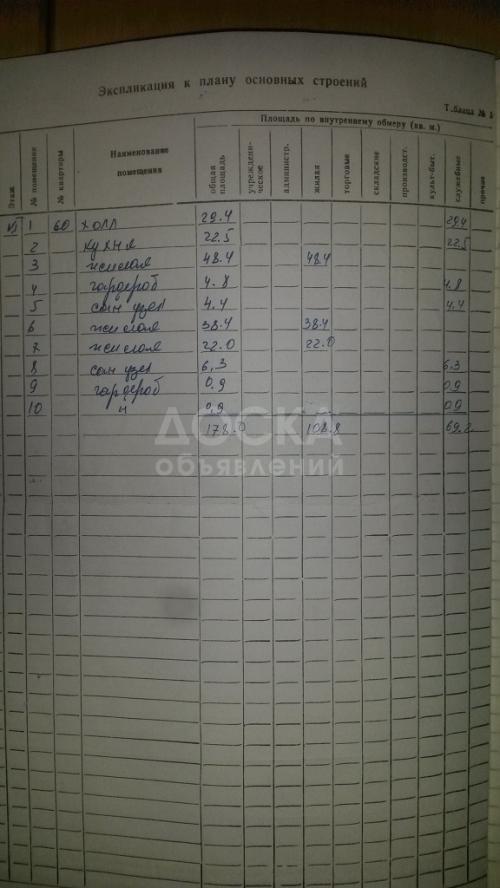 Экспликация к плану основных строений
Таблица № 5
Этаж № помещения № квартиры Наименование помещения Площадь по внутреннему обмеру (кв. м.)
общая площадь учрежденческое администр. жилая торговые складские производст. культ-быт. служебные прочие
1 60 холл 29.4 29.4
2 кухня 22.5 22.5
3 жилая 48.4 48.4
4 гардероб 4.8 4.8
5 сан узел 4.4 4.4
6 жилая 38.4 38.4
7 жилая 22.0 22.0
8 сан узел 6,3 6.3
9 гардероб 0.9 0.9
10 " 0.9 0.9
178.0 108.8 69.2
ДОСКА
объявлений